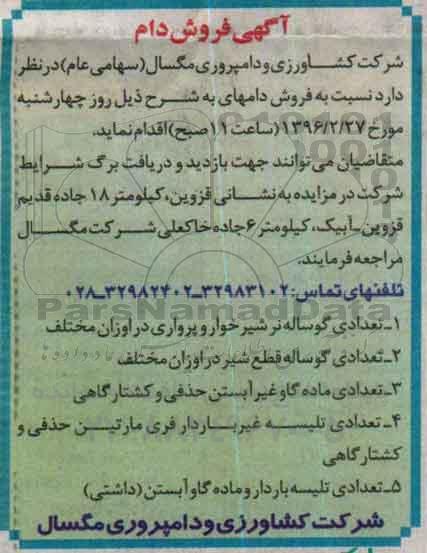 آگهی فروش دام
شرکت کشاورزی و دامپروری مگسال (سهامی عام) در نظر
دارد نسبت به فروش دامهای به شرح ذیل روز چهارشنبه
مورخ ۱۳۹۶/۲/۲۷ (ساعت ۱۱ صبح) اقدام نماید.
متقاضیان می توانند جهت بازدید و دریافت برگ شرایط
شرکت در مزایده به نشانی قزوین، کیلومتر ۱۸ جاده قدیم
قزوین-آبیک، کیلومتر ۶ جاده خاکعلی شرکت مگسال
مراجعه فرمایند.
تلفنهای تماس: ۳۲۹۸۳۱۰۲-۳۲۹۸۲۴۰۲-۰۲۸
ParsNamadData
۱-تعدادی گوساله نر شیرخوار و پرواری در اوزان مختلف
۲-تعدادی گوساله قطع شیر در اوزان مختلف
۳-تعدادی ماده گاو غیر آبستن حذفی و کشتارگاهی
۴-تعدادی تلیسه غیر باردار فری مارتین حذفی و
کشتارگاهی
۵-تعدادی تلیسه باردار و ماده گاو آبستن (داشتی)
شرکت کشاورزی و دامپروری مگسال